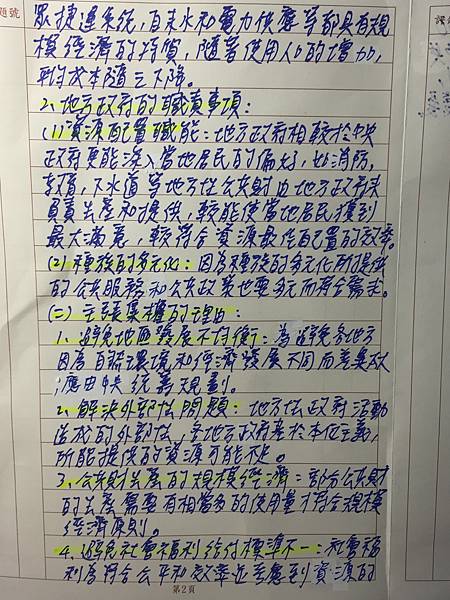 題號
眾捷運系統,自來水和電力供應等都具有規
模經濟的特質,隨著使用人口的增加,
平均成本隨之下降。
2、地方政府的職演事項:
(1)資源配置職能:地方政府相較於中央
政府更能深入當地居民的偏好,如消防,
教育,下水道等地方性公共財由地方政府來
負責生產和提供,較能使當地居民獲到
最大滿意,較符合資源最佳配置的效率。
(2)種族的多元化:因為種族的多元化所提供
的公共服務和公共政策也要多元而符合需求。
(二)主張集權的理由:
1、避免地區發展不均衡:為避免各地方
因為自然環境和經濟發展不同而差異大
,應由中央統籌規劃。
2、解決外部性問題:地方性政府活動
造成的外部性,各地方政府基於本位主義,
所能提供的資源可能不足。
3、公共財生產的規模經濟:部分公共財
的生產需要有相當多的使用量才符合規模
經濟原則。
4、避免社會福利給付標準不一:社會福
利為符合公平和效率並考慮到資源的
第2頁